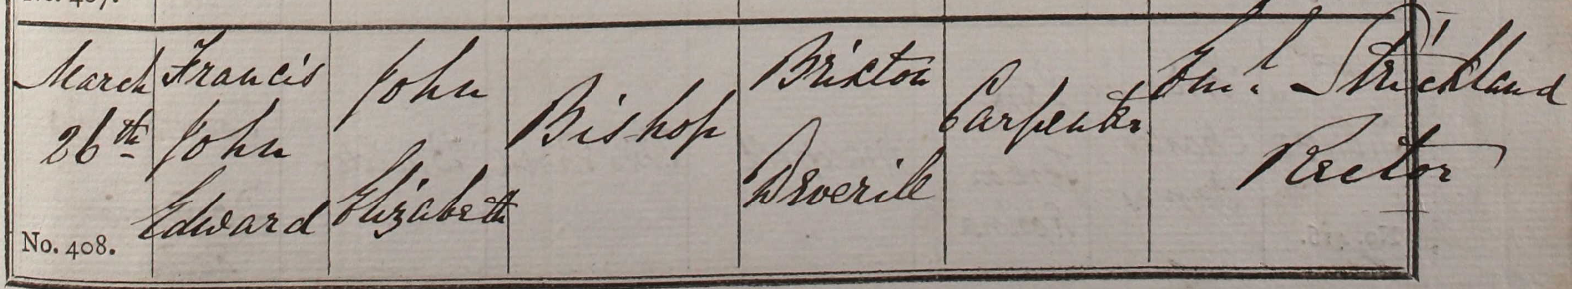 March 26th
Francis John Edward
John Elizabeth
Bishop
Brixton Deverill
Carpenter
Eml. Strickland Rector
No. 408.